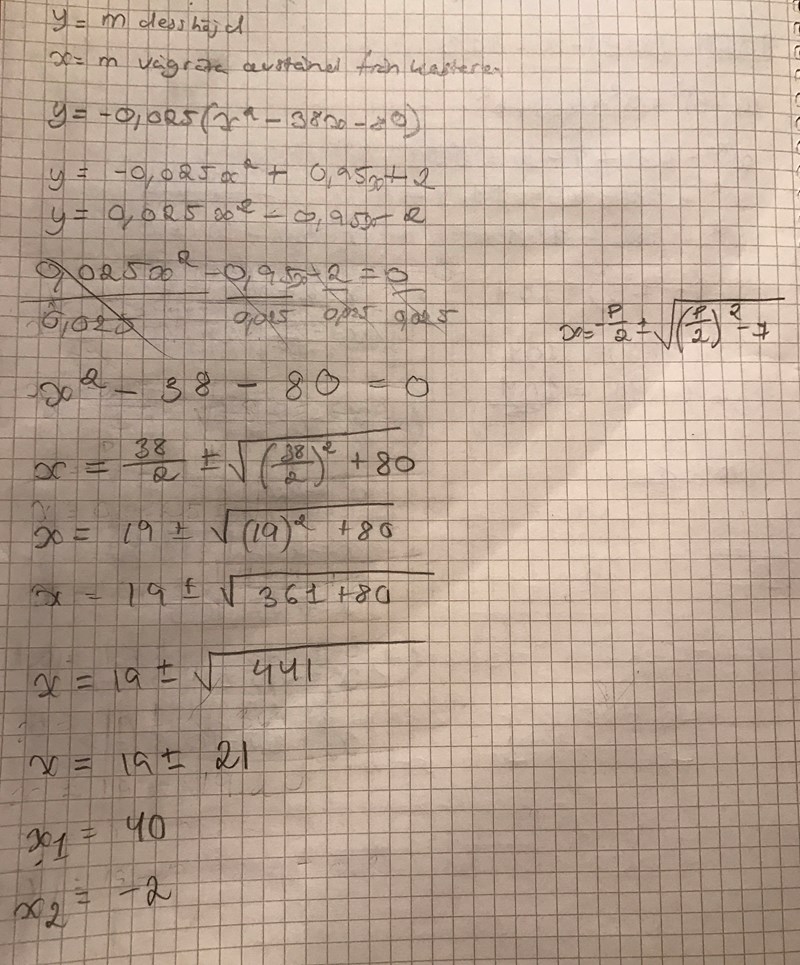 y = m dess höjd
x = m vågräta avstånd från kastaren
y = -0,025(x² - 38x - 80)
y = -0,025x² + 0,95x + 2
y = 0,025x² - 0,95x - 2
0,025x² - 0,95x + 2 = 0
0,025 0,025 0,025 0,025
x = -p/2 ± √((p/2)² - 7
x² - 38 - 80 = 0
x = 38/2 ± √((38/2)² + 80
x = 19 ± √((19)² + 80
x = 19 ± √(361 + 80
x = 19 ± √441
x = 19 ± 21
x₁ = 40
x₂ = -2